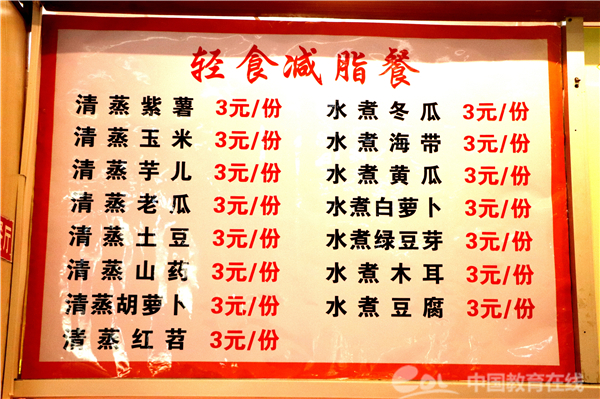 轻食减脂餐
清蒸紫薯 3元/份
清蒸玉米 3元/份
清蒸芋儿 3元/份
清蒸老瓜 3元/份
清蒸土豆 3元/份
清蒸山药 3元/份
清蒸胡萝卜 3元/份
清蒸红苕 3元/份
水煮冬瓜 3元/份
水煮海带 3元/份
水煮黄瓜 3元/份
水煮白萝卜 3元/份
水煮绿豆芽 3元/份
水煮木耳 3元/份
水煮豆腐 3元/份
eol 中国教育在线